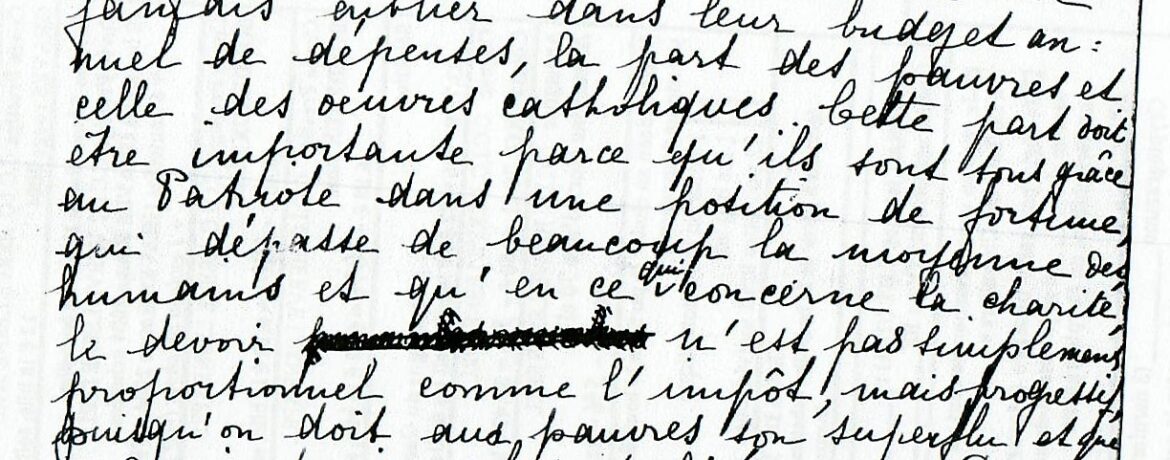 jamais oublier dans leur budget an=
nuel de dépenses, la part des pauvres et
celle des oeuvres catholiques. Cette part doit
être importante parce qu'ils sont tous grâce
au Patriote dans une position de fortune,
qui dépasse de beaucoup la moyenne des
humains et qu'en ce qui concerne la charité,
le devoir n'est pas simplement
proportionnel comme l'impôt, mais progressif,
puisqu'on doit aux pauvres son superflu et que